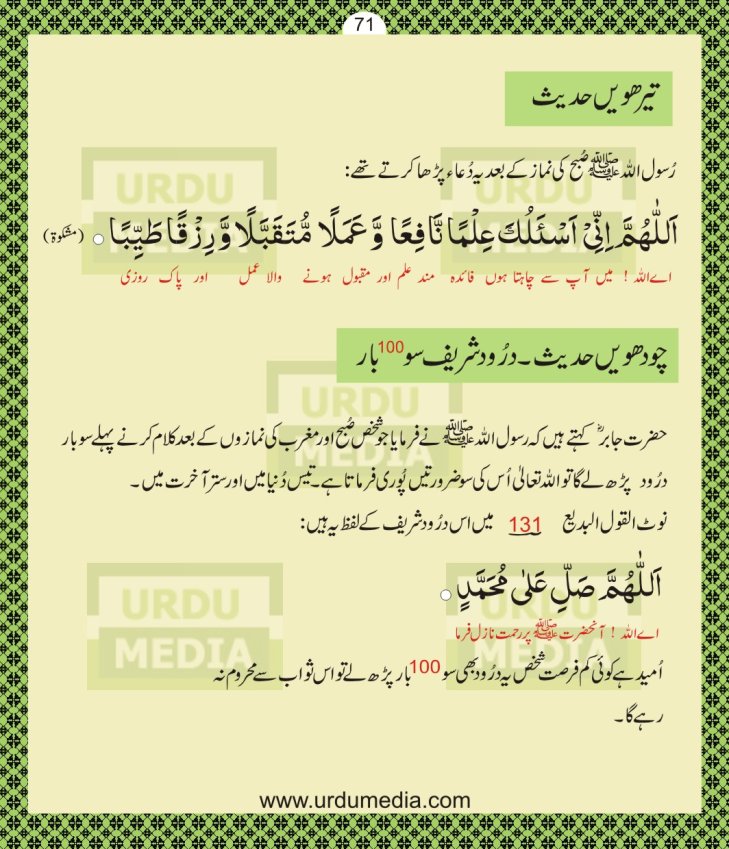 71
تیرھویں حدیث
رُسول اللہ ﷺ صُبح کی نماز کے بعد یہ دُعاء پڑھا کرتے تھے:
اَللّٰهُمَّ اِنِّیْ اَسْئَلُكَ عِلْمًا نَّافِعًا وَّ عَمَلًا مُّتَقَبَّلًا وَّ رِزْقًا طَیِّبًا ○ (مشکوٰۃ)
اے اللہ ! میں آپ سے چاہتا ہوں فائدہ مند علم اور مقبول ہونے والا عمل اور پاک روزی
چودھویں حدیث ۔ درُود شریف سو 100 بار
حضرت جابرؓ کہتے ہیں کہ رسول اللہ ﷺ نے فرمایا جو شخص صُبح اور مغرب کی نمازوں کے بعد کلام کرنے پہلے سو بار
درُود پڑھ لے گا تو اللہ تعالیٰ اُس کی سو ضرورتیں پُوری فرماتا ہے۔ تیس دُنیا میں اور ستر آخرت میں ۔
نوٹ القول البدیع 131 میں اس درُود شریف کے لفظ یہ ہیں:
اَللّٰهُمَّ صَلِّ عَلٰی مُحَمَّدٍ ○
اے اللہ ! آنحضرت ﷺ پر رحمت نازل فرما
اُمید ہے کوئی کم فرصت شخص یہ درُود بھی سو 100 بار پڑھ لے تو اس ثواب سے محروم نہ
رہے گا ۔
www.urdumedia.com
URDU MEDIA
URDU MEDIA
URDU MEDIA
URDU MEDIA
URDU MEDIA